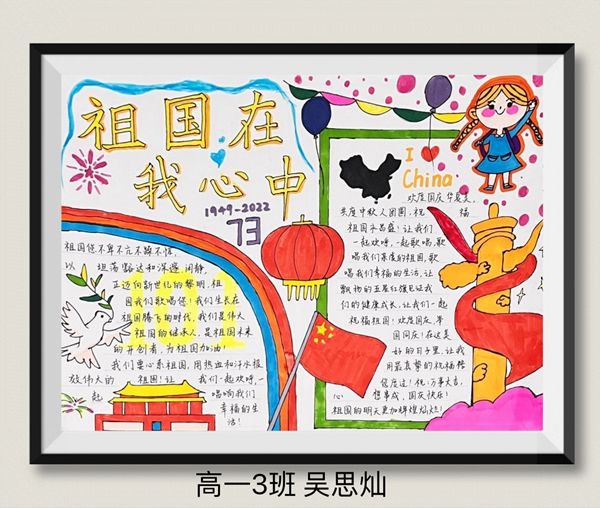 祖国在
我心中
1949-2022
73
祖国您不卑不亢不躁不恼,
以 坦荡豁达和深邃闲静,
正迈向新世纪的黎明,祖
国我们歌唱您!我们生长在
祖国腾飞的时代,我们是伟大
祖国的继承人,是祖国未来
的开创者,为祖国加油!
我们要心系祖国,用热血和汗水报
放伟大的 祖国!让 我们一起欢呼,一
起 唱响我们
幸福的生
活!
I ❤ China
欢度国庆华夏美,
共度中秋人团圆,祝 福
祖国永昌盛!让我们
一起欢呼,一起歌唱,歌
唱我们亲爱的祖国,歌
唱我们幸福的生活,让
飘扬的五星红旗见证我
们的健康成长,让我们一起
祝福祖国!欢度国庆,举
国同庆!在这美
好的日子里,让我
用最真挚的祝福稽
信度过!祝:万事大吉,
心 想事成,国庆快乐!
祖国的明天更加辉煌灿烂!
高一3班 吴思灿